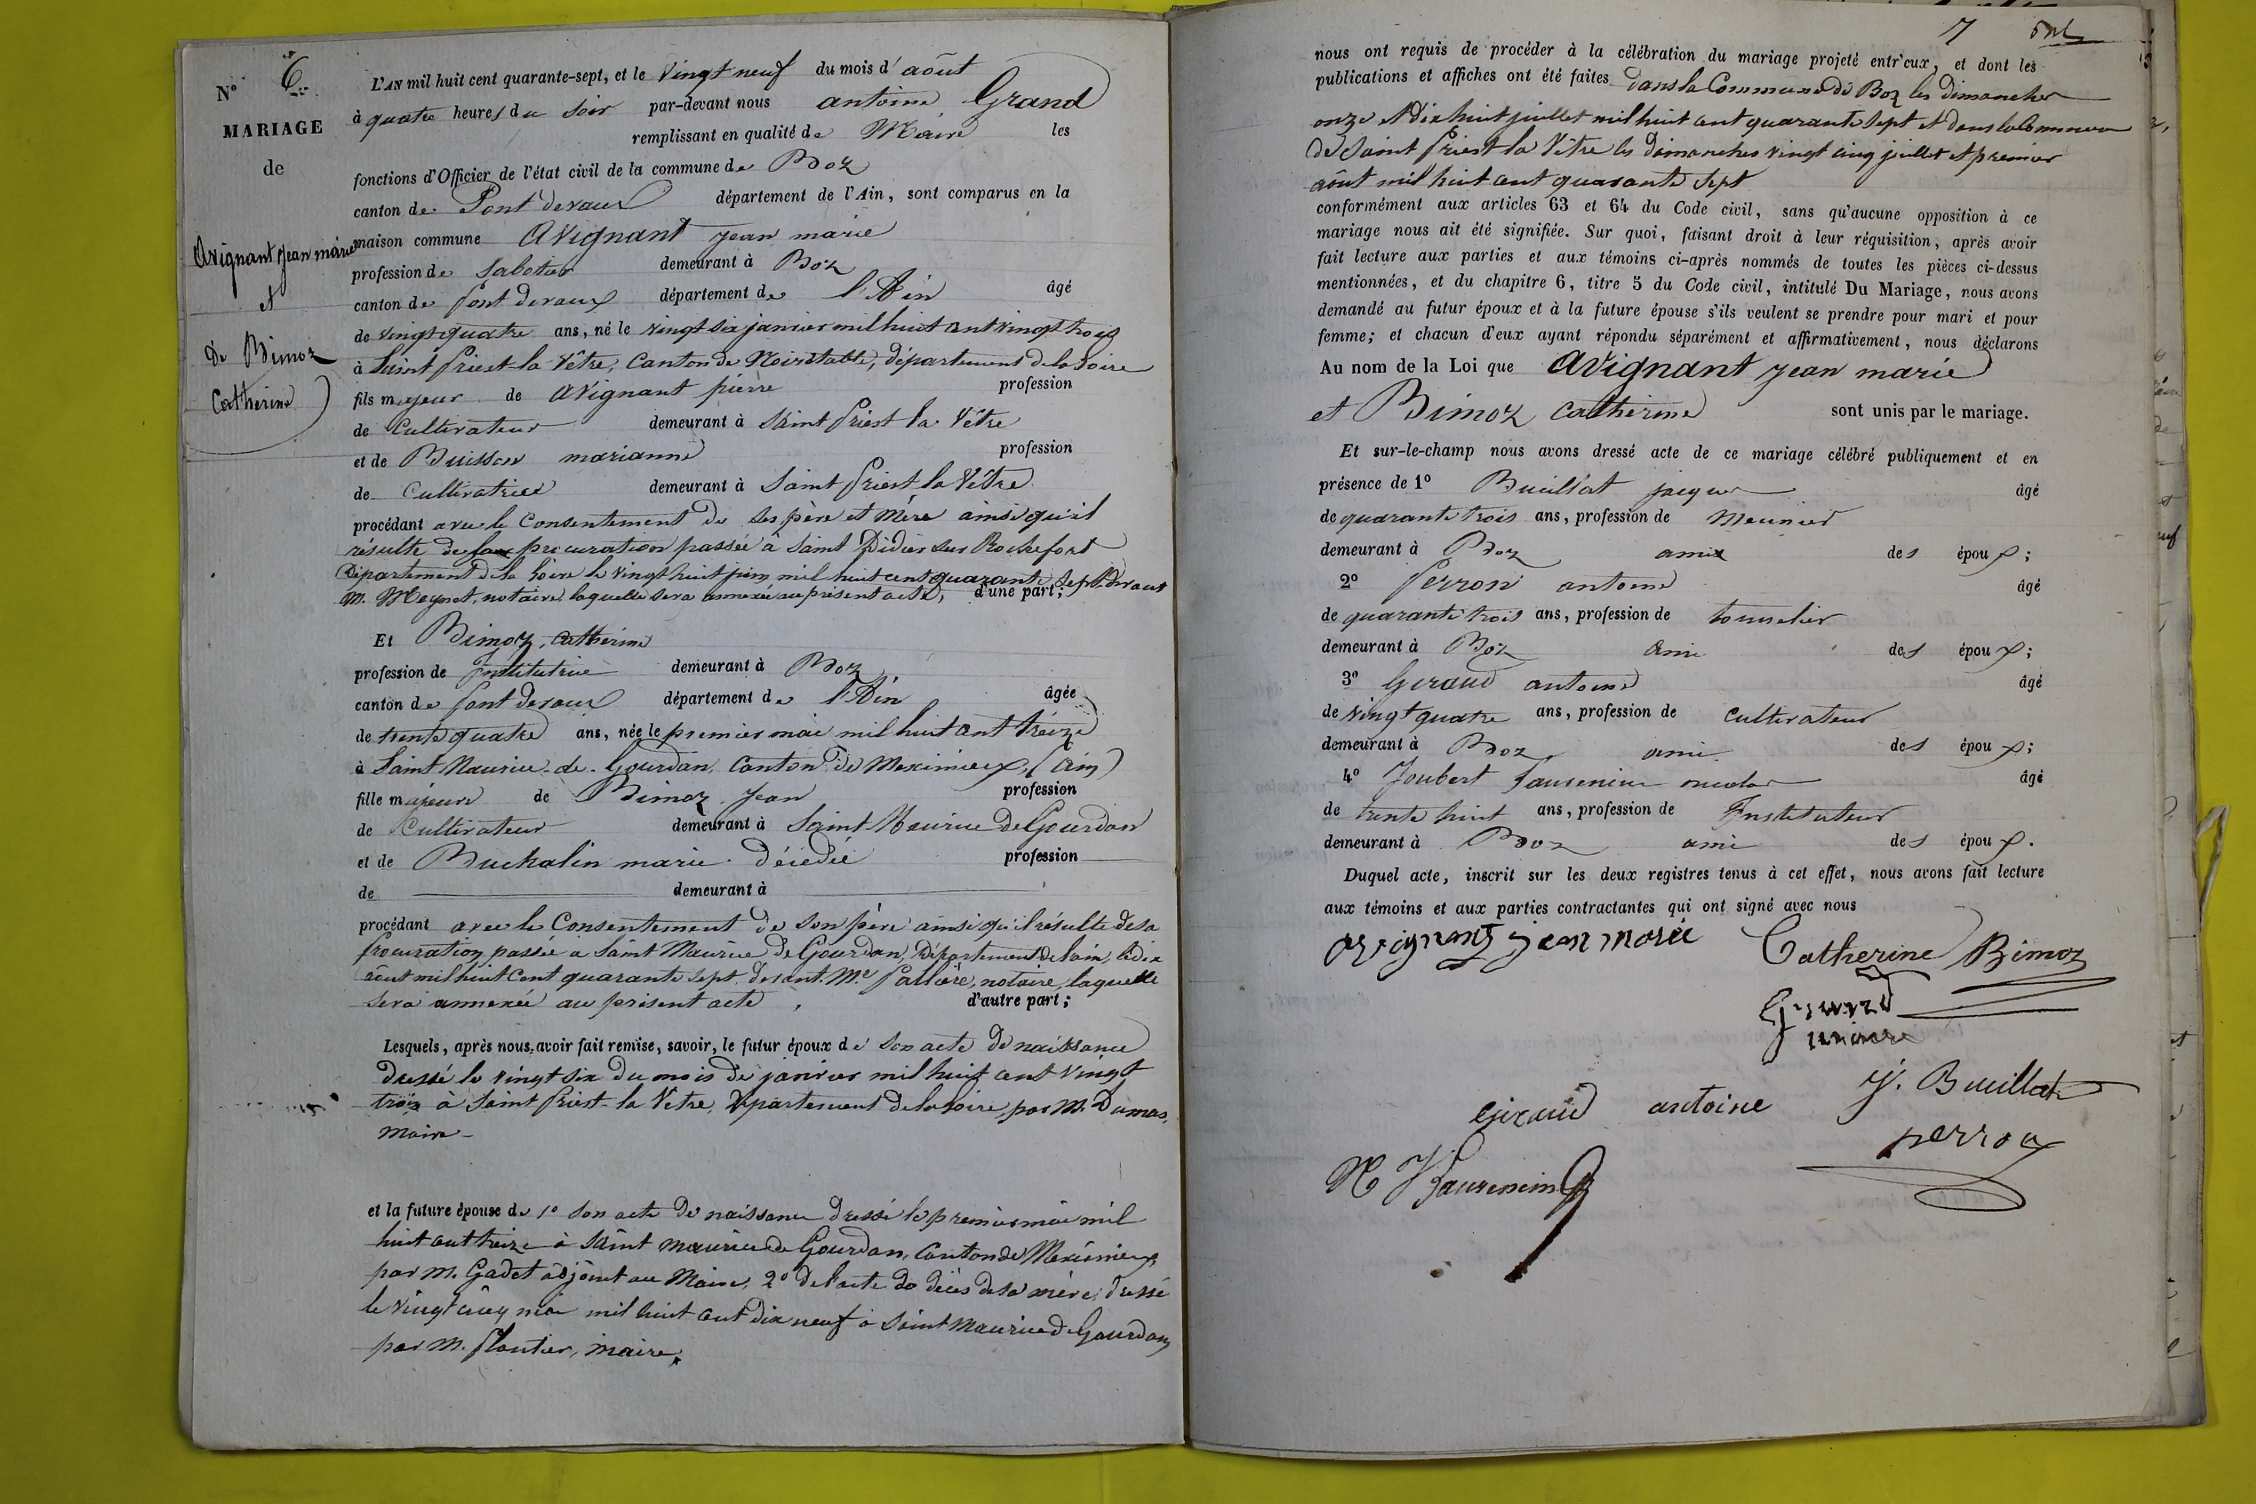 N° 6
MARIAGE
de
Avignant Jean marie
et
De Bimoz
Catherine
L'AN mil huit cent quarante-sept, et le vingt neuf du mois d'août
à quatre heures du soir par-devant nous antoine Grand
remplissant en qualité de Maire les
fonctions d'Officier de l'état civil de la commune de Boz
canton de Pont devaux département de l'Ain, sont comparus en la
maison commune Avignant Jean marie
profession de Sabotier demeurant à Boz
canton de Pont devaux département de l'Ain âgé
de vingt quatre ans, né le vingt six janvier mil huit cent vingt trois
à Saint Priest-la Vêtre, Canton de Noirétable, département de la Loire
fils majeur de Avignant pierre profession
de Cultivateur demeurant à Saint Priest la Vêtre
et de Buisson marianne profession
de Cultivatrice demeurant à Saint Priest la Vêtre
procédant avec le Consentement de ses père et Mère ainsi qu'il
résulte de procuration passée à Saint Didier sur Rochefort
Département de la Loire le vingt huit juin mil huit cent quarante sept devant
M. Meynet, notaire, laquelle sera annexée au présent acte, d'une part;
Et Bimoz, Catherine
profession de Institutrice demeurant à Boz
canton de Pont devaux département de l'Ain âgée
de trente quatre ans, née le premier mai mil huit cent treize
à Saint Maurice-de-Gourdan, Canton de Meximieux, (Ain)
fille majeure de Bimoz Jean profession
de Cultivateur demeurant à Saint Maurice De Gourdan
et de Buchalin marie décédée profession
de demeurant à
procédant avec le Consentement de son père ainsi qu'il résulte de sa
procuration passée à Saint Maurice De Gourdan, Département de l'ain, le dix
août mil huit cent quarante sept devant Me Pallière, notaire, laquelle
sera annexée au présent acte, d'autre part;
Lesquels, après nous avoir fait remise, savoir, le futur époux de son acte de naissance
dressé le vingt six du mois de janvier mil huit cent vingt
trois à Saint Priest-la Vetre, Département de la Loire, par M. Dumas,
Maire
et la future épouse de 1° son acte de naissance dressé le premier mai mil
huit cent treize à Saint Maurice de Gourdan, Canton de Meximieux
par M. Gadet adjoint au Maire, 2° de l'acte de décès de sa mère, dressé
le vingt cinq mai mil huit cent dix neuf à Saint Maurice de Gourdan,
par M. Plantier, maire.
7
nous ont requis de procéder à la célébration du mariage projeté entr'eux, et dont les
publications et affiches ont été faites dans la Commune de Boz les dimanches
onze et dix huit juillet mil huit cent quarante sept et dans la Commune
de Saint Priest la Vêtre les dimanches vingt cinq juillet et premier
août mil huit cent quarante sept
conformément aux articles 63 et 64 du Code civil, sans qu'aucune opposition à ce
mariage nous ait été signifiée. Sur quoi, faisant droit à leur réquisition, après avoir
fait lecture aux parties et aux témoins ci-après nommés de toutes les pièces ci-dessus
mentionnées, et du chapitre 6, titre 5 du Code civil, intitulé Du Mariage, nous avons
demandé au futur époux et à la future épouse s'ils veulent se prendre pour mari et pour
femme; et chacun d'eux ayant répondu séparément et affirmativement, nous déclarons
Au nom de la Loi que Avignant Jean marie
et Bimoz Catherine sont unis par le mariage.
Et sur-le-champ nous avons dressé acte de ce mariage célébré publiquement et en
présence de 1° Buillat jacque âgé
de quarante trois ans, profession de Meunier
demeurant à Boz ami des époux;
2° Perron antoine âgé
de quarante trois ans, profession de tonnelier
demeurant à Boz ami des époux;
3° Giraud antoine âgé
de vingt quatre ans, profession de Cultivateur
demeurant à Boz ami des époux;
4° Joubert âgé
de trente huit ans, profession de Instituteur
demeurant à Boz ami des époux.
Duquel acte, inscrit sur les deux registres tenus à cet effet, nous avons fait lecture
aux témoins et aux parties contractantes qui ont signé avec nous
avignant jean marie Catherine Bimoz
Grand
maire
J. Buillat
Giraud antoine
perron